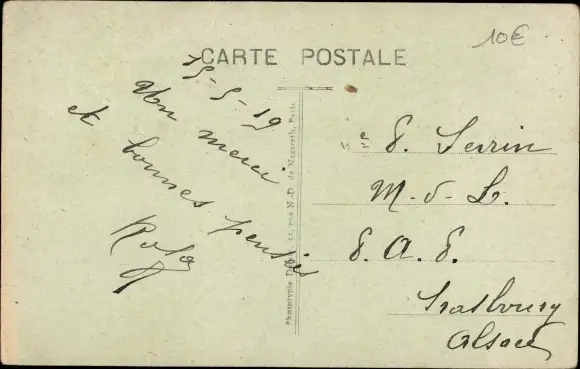 10€
CARTE POSTALE
15-5-19
Un merci
et bonnes pensées
Rosa
E. Serrin
M.d.L.
E.A.E.
Strasbourg
Alsace
Phototypie
rue N.-D. de Nazareth, Paris